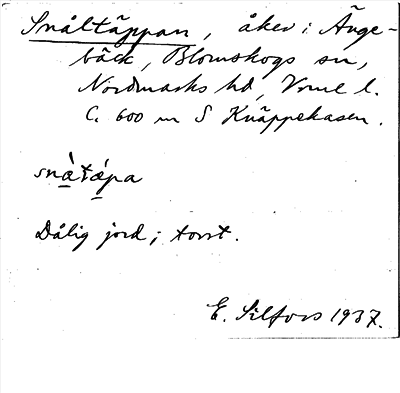 Snåltäppan, åker i Ånge-
bäck, Blomskogs sn,
Nordmarks hd, Vrml l.
C. 600 m S Knäppekasen.
snæ̀tǽpa
Dålig jord; torrt.
E. Silfors 1937.